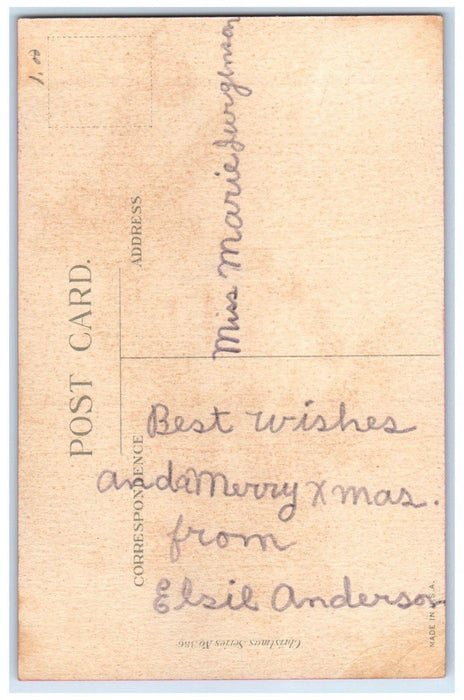 1.00
POST CARD.
CORRESPONDENCE
ADDRESS
Miss Marie Jurgensen
Best wishes
and a Merry Xmas.
from
Elsie Anderson
Christmas Series No. 386
MADE IN U.S.A.